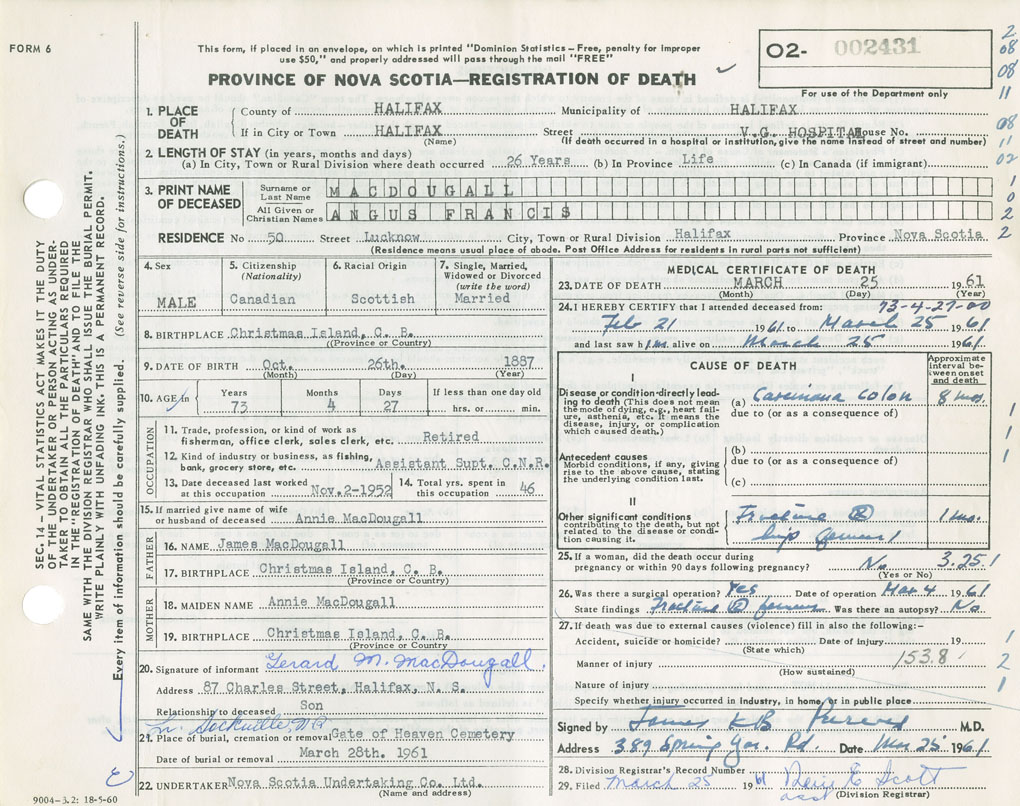 FORM 6
This form, if placed in an envelope, on which is printed "Dominion Statistics—Free, penalty for improper
use $50," and properly addressed will pass through the mail "FREE"
PROVINCE OF NOVA SCOTIA—REGISTRATION OF DEATH
O2- 002431
For use of the Department only
2
08
08
11
08
11
02
1
0
2
2
1
1
1
1
2
1
SEC. 14—VITAL STATISTICS ACT MAKES IT THE DUTY
OF THE UNDERTAKER OR PERSON ACTING AS UNDER-
TAKER TO OBTAIN ALL THE PARTICULARS REQUIRED
IN THE "REGISTRATION OF DEATH" AND TO FILE THE
SAME WITH THE DIVISION REGISTRAR WHO SHALL ISSUE THE BURIAL PERMIT.
WRITE PLAINLY WITH UNFADING INK. THIS IS A PERMANENT RECORD.
Every item of information should be carefully supplied. (See reverse side for instructions.)
1. PLACE OF DEATH
County of HALIFAX Municipality of HALIFAX
If in City or Town HALIFAX Street V.G. HOSPITAL House No.
(Name) (If death occurred in a hospital or institution, give the name instead of street and number)
2. LENGTH OF STAY (in years, months and days)
(a) In City, Town or Rural Division where death occurred 26 Years (b) In Province Life (c) In Canada (if immigrant)
3. PRINT NAME OF DECEASED
Surname or Last Name MACDOUGALL
All Given or Christian Names ANGUS FRANCIS
RESIDENCE No 50 Street Lucknow City, Town or Rural Division Halifax Province Nova Scotia
(Residence means usual place of abode. Post Office Address for residents in rural parts not sufficient)
4. Sex 5. Citizenship (Nationality) 6. Racial Origin 7. Single, Married, Widowed or Divorced (write the word)
MALE Canadian Scottish Married
8. BIRTHPLACE Christmas Island, C. B.
(Province or Country)
9. DATE OF BIRTH Oct. 26th. 1887
(Month) (Day) (Year)
10. AGE in Years Months Days If less than one day old
73 4 27 hrs. or min.
OCCUPATION
11. Trade, profession, or kind of work as
fisherman, office clerk, sales clerk, etc. Retired
12. Kind of industry or business, as fishing,
bank, grocery store, etc. Assistant Supt. C.N.R.
13. Date deceased last worked at this occupation Nov.2-1952 14. Total yrs. spent in this occupation 46
15. If married give name of wife
or husband of deceased Annie MacDougall
FATHER
16. NAME James MacDougall
17. BIRTHPLACE Christmas Island, C. B.
(Province or Country)
MOTHER
18. MAIDEN NAME Annie MacDougall
19. BIRTHPLACE Christmas Island, C. B.
(Province or Country)
20. Signature of informant Gerard M. MacDougall
Address 87 Charles Street, Halifax, N. S.
Relationship to deceased Son
Sackville, N.S.
21. Place of burial, cremation or removal Gate of Heaven Cemetery
Date of burial or removal March 28th. 1961
22. UNDERTAKER Nova Scotia Undertaking Co. Ltd.
(Name and address)
9004-3.2: 18-5-60
MEDICAL CERTIFICATE OF DEATH
23. DATE OF DEATH MARCH 25 1961
(Month) (Day) (Year)
73-4-27-00
24. I HEREBY CERTIFY that I attended deceased from:
Feb 21 1961 to March 25 1961
and last saw him alive on March 25 1961
CAUSE OF DEATH
Approximate interval between onset and death
I
Disease or condition directly leading to death (This does not mean the mode of dying, e.g., heart failure, asthenia, etc. It means the disease, injury, or complication which caused death.)
(a) Carcinoma Colon 8 mos.
due to (or as a consequence of)
Antecedent causes
Morbid conditions, if any, giving rise to the above cause, stating the underlying condition last.
(b)
due to (or as a consequence of)
(c)
II
Other significant conditions
contributing to the death, but not related to the disease or condition causing it.
Fracture R 1 mo.
hip femur
25. If a woman, did the death occur during
pregnancy or within 90 days following pregnancy? No 3.25.1
(Yes or No)
26. Was there a surgical operation? Yes Date of operation Mar 4 1961
State findings Fracture R femur Was there an autopsy? No
27. If death was due to external causes (violence) fill in also the following:-
Accident, suicide or homicide? Date of injury 19
(State which)
Manner of injury 153.8
(How sustained)
Nature of injury
Specify whether injury occurred in industry, in home, or in public place
Signed by James K B Purves M.D.
Address 389 Spring Gar. Rd. Date Mar 25 1961
28. Division Registrar's Record Number
29. Filed March 25 1961 Scott
asst (Division Registrar)